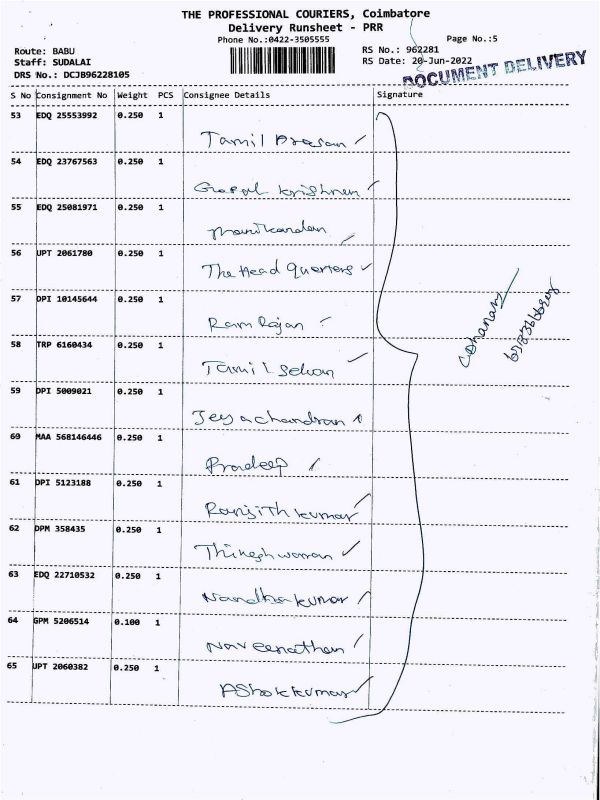 THE PROFESSIONAL COURIERS, Coimbatore
Delivery Runsheet - PRR
Phone No.:0422-3505555 Page No.:5
Route: BABU RS No.: 962281
Staff: SUDALAI RS Date: 20-Jun-2022
DRS No.: DCJB96228105
DOCUMENT DELIVERY
S No Consignment No Weight PCS Consignee Details Signature
53 EDQ 25553992 0.250 1
Tamil Arasan
54 EDQ 23767563 0.250 1
Gopal Krishnan
55 EDQ 25081971 0.250 1
Manikandan
56 UPT 2061780 0.250 1
The Head Quarters
57 DPI 10145644 0.250 1
Ram Rajan
58 TRP 6160434 0.250 1
Tamil Selvan
59 DPI 5009021 0.250 1
Jeyachandran
60 MAA 568146446 0.250 1
Pradeep
61 DPI 5123188 0.250 1
Ranjith kumar
62 DPM 358435 0.250 1
Thineshwaran
63 EDQ 22710532 0.250 1
Nandhakumar
64 GPM 5206514 0.100 1
Naveenathan
65 UPT 2060382 0.250 1
AShokkumar